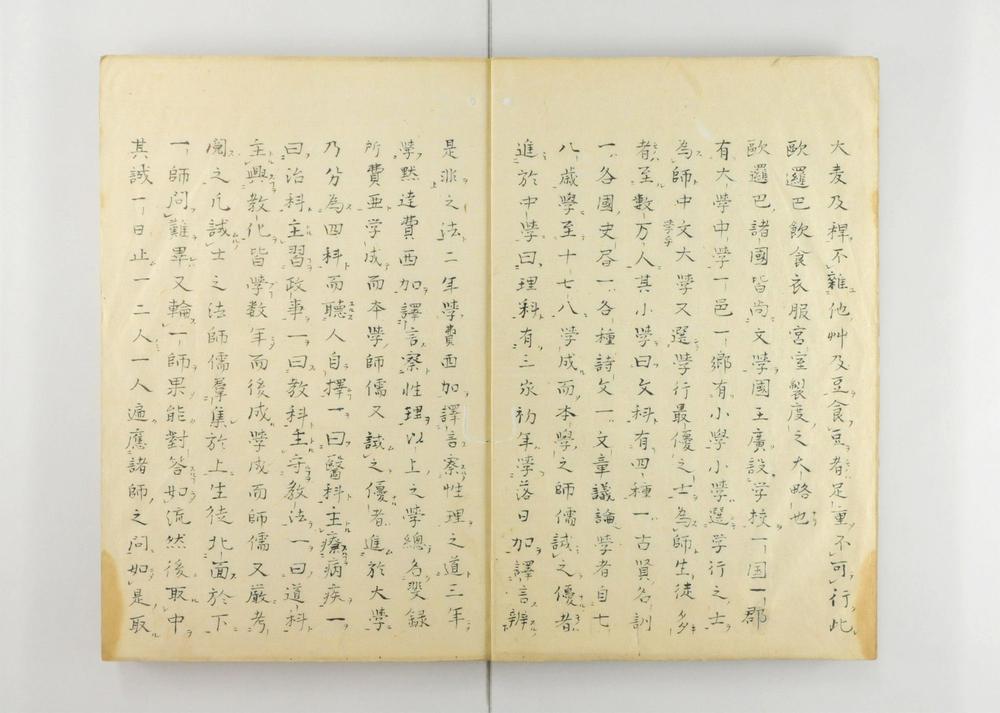 大麦及稈不雜他艸及豆食豆者足重不可行此
歐邏巴飲食衣服宮室製度之大略也
歐邏巴諸國皆尚文學國王廣設学校一国一郡
有大學中學一邑一鄉有小學小學選学行之士
為師中文大學又選學行最優之士為師生徒多
者至數万人其小學曰文科有四種一古賢名訓
一各國史昏一各種詩文一文章議論學者自七
八歲學至十七八學成而本學之師儒試之優者
進於中學曰理科有三家初年學落日加譯言辨
是非之法二年學費西加譯言察性理之道三年
學默達費西加譯言察性理以上之學總名斐録
所費亜学成而本學師儒又試之優者進於大學
乃分為四科而聽人自擇一曰醫科主療病疾一
曰治科主習政事一曰教科主守教法一曰道科
主興教化皆學数年而後成学成而師儒又嚴考
閱之凡試士之法師儒羣集於上生徒北面於下
一師問難畢又輪一師果能對答如流然後取中
其試一日止一二人一人遍應諸師之問如是取